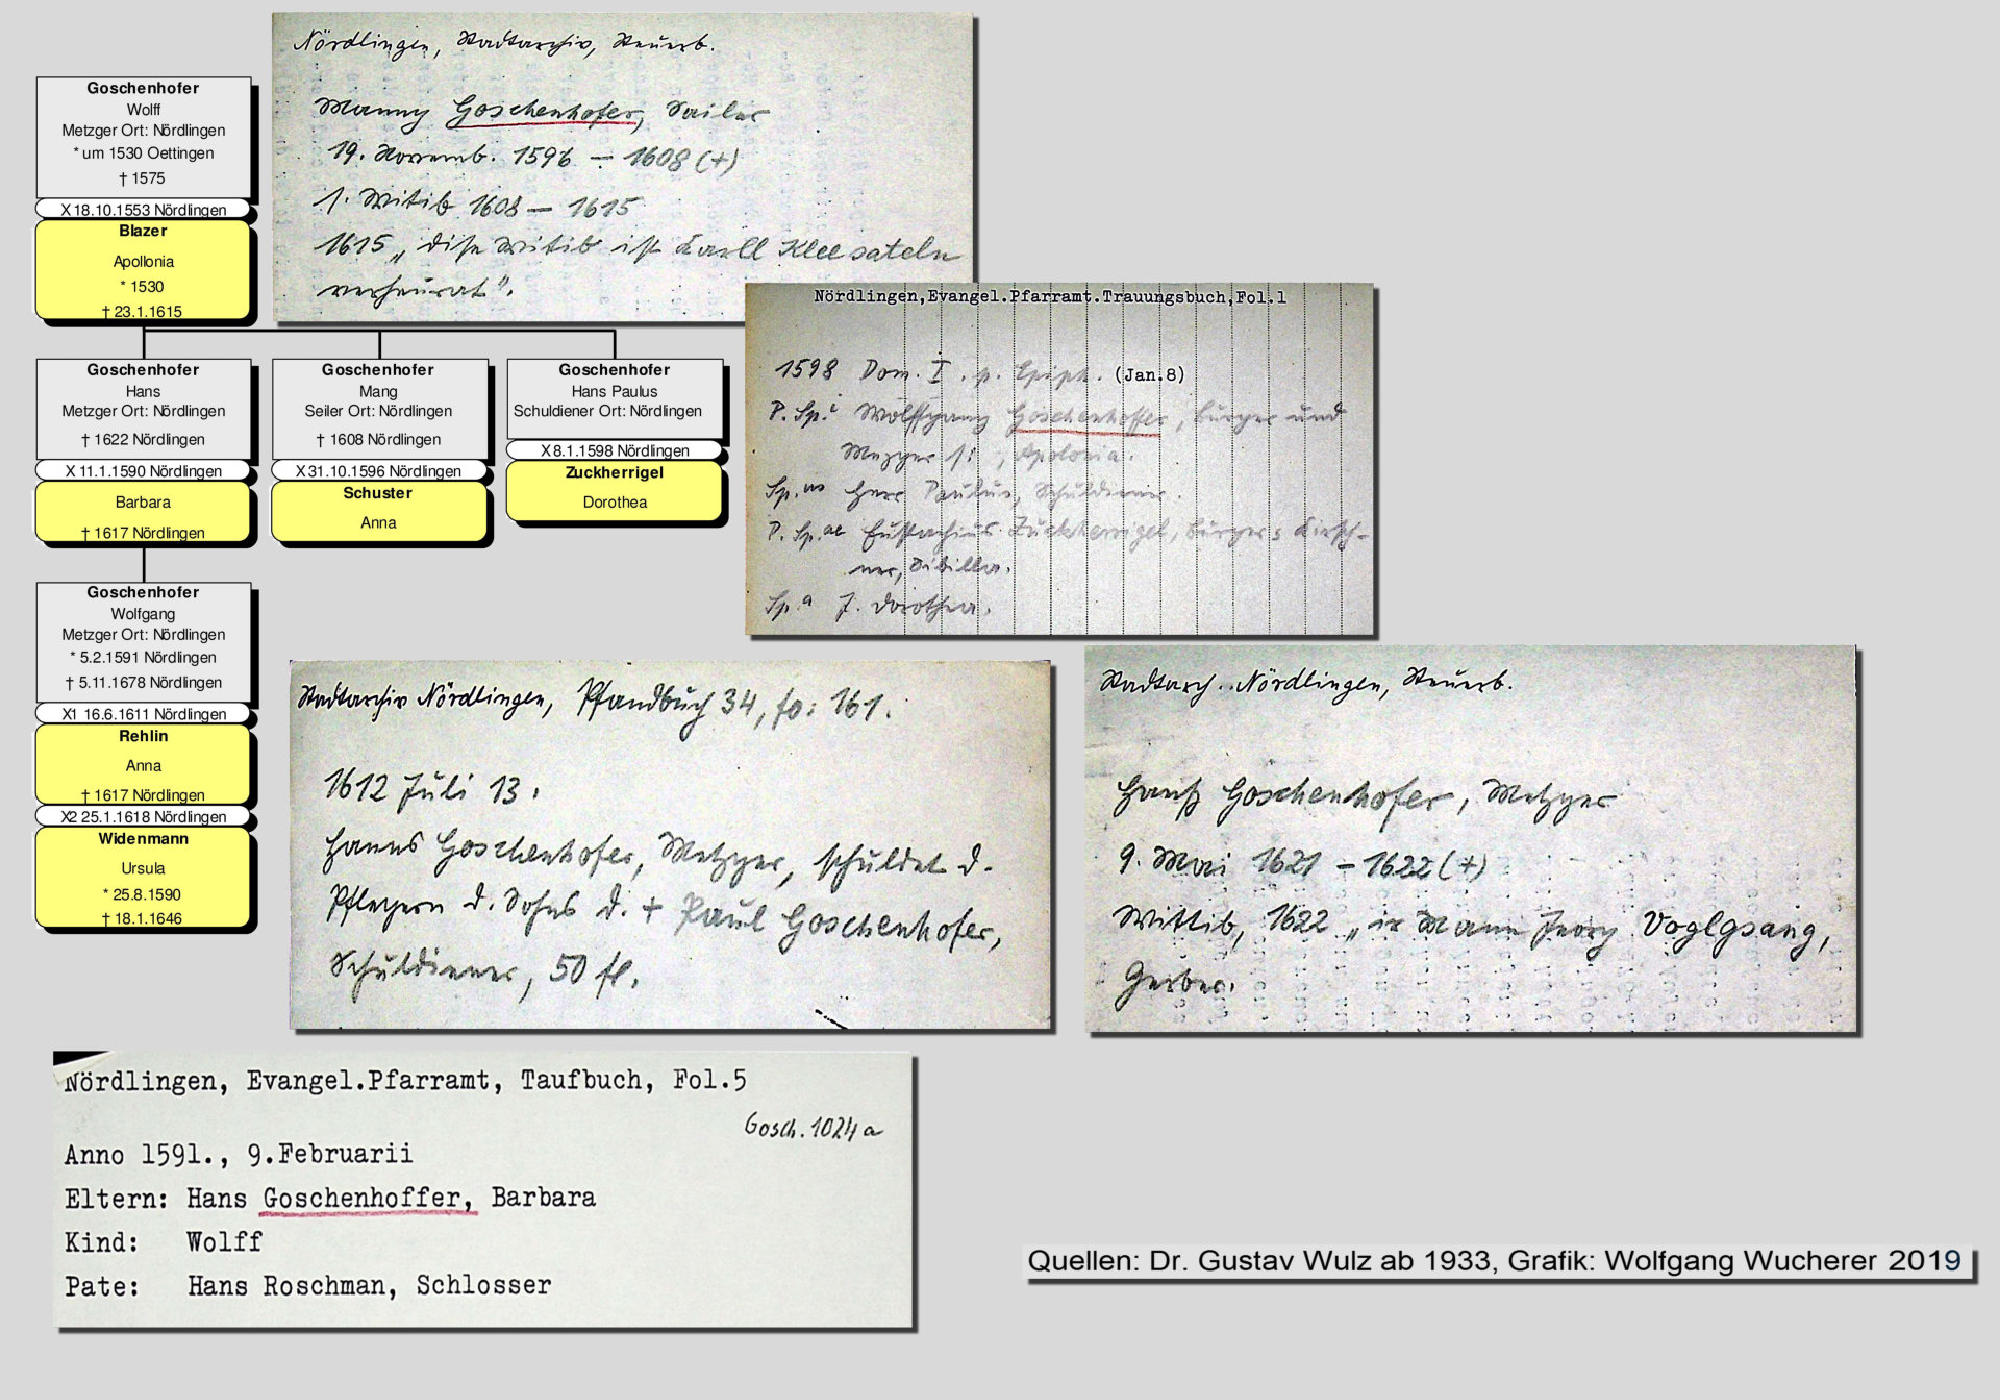 Goschenhofer
Wolff
Metzger Ort: Nördlingen
* um 1530 Oettingen
† 1575
X 18.10.1553 Nördlingen
Blazer
Apollonia
* 1530
† 23.1.1615
Goschenhofer
Hans
Metzger Ort: Nördlingen
† 1622 Nördlingen
X 11.1.1590 Nördlingen
Barbara
† 1617 Nördlingen
Goschenhofer
Mang
Seiler Ort: Nördlingen
† 1608 Nördlingen
X 31.10.1596 Nördlingen
Schuster
Anna
Goschenhofer
Hans Paulus
Schuldiener Ort: Nördlingen
X 8.1.1598 Nördlingen
Zuckherrigel
Dorothea
Goschenhofer
Wolfgang
Metzger Ort: Nördlingen
* 5.2.1591 Nördlingen
† 5.11.1678 Nördlingen
X1 16.6.1611 Nördlingen
Rehlin
Anna
† 1617 Nördlingen
X2 25.1.1618 Nördlingen
Widenmann
Ursula
* 25.8.1590
† 18.1.1646
Nördlingen, Stadtarchiv, Steuerb.
Manng Goschenhofer, Sailer
19. Novemb. 1596 – 1608 (+)
1. Witib 1608 – 1615
1615 „dise Witib ist Karll Klee sateln
verheurat".
Nördlingen,Evangel.Pfarramt.Trauungsbuch,Fol.1
1598 Dom. I. p. Epiph. (Jan.8)
P. Sp.i Wolffgang Goschenhoffer, Burger und
Mezger s: , Apolonia.
Sp.us Herr Paulus, Schuldiener.
P. Sp.ae Eustachius Zuckherrigel, Burger & Kirsch-
ner, Sibilla.
Sp.a J. Dorothea.
Stadtarchiv Nördlingen, Pfandbuch 34, fo: 161.
1612 Juli 13.
Hanns Goschenhofer, Metzger, schuldet d.
Pflegern d. Sohns d. + Paul Goschenhofer,
Schuldiener, 50 fl.
Stadtarch. Nördlingen, Steuerb.
Hanß Goschenhofer, Metzger
9. Mai 1621 – 1622 (+)
Wittib, 1622 „ir Mann Jeorg Voglgsang,
Gerber.
Nördlingen, Evangel.Pfarramt, Taufbuch, Fol.5
Gosch. 1024 a
Anno 1591., 9.Februarii
Eltern: Hans Goschenhoffer, Barbara
Kind: Wolff
Pate: Hans Roschman, Schlosser
Quellen: Dr. Gustav Wulz ab 1933, Grafik: Wolfgang Wucherer 2019